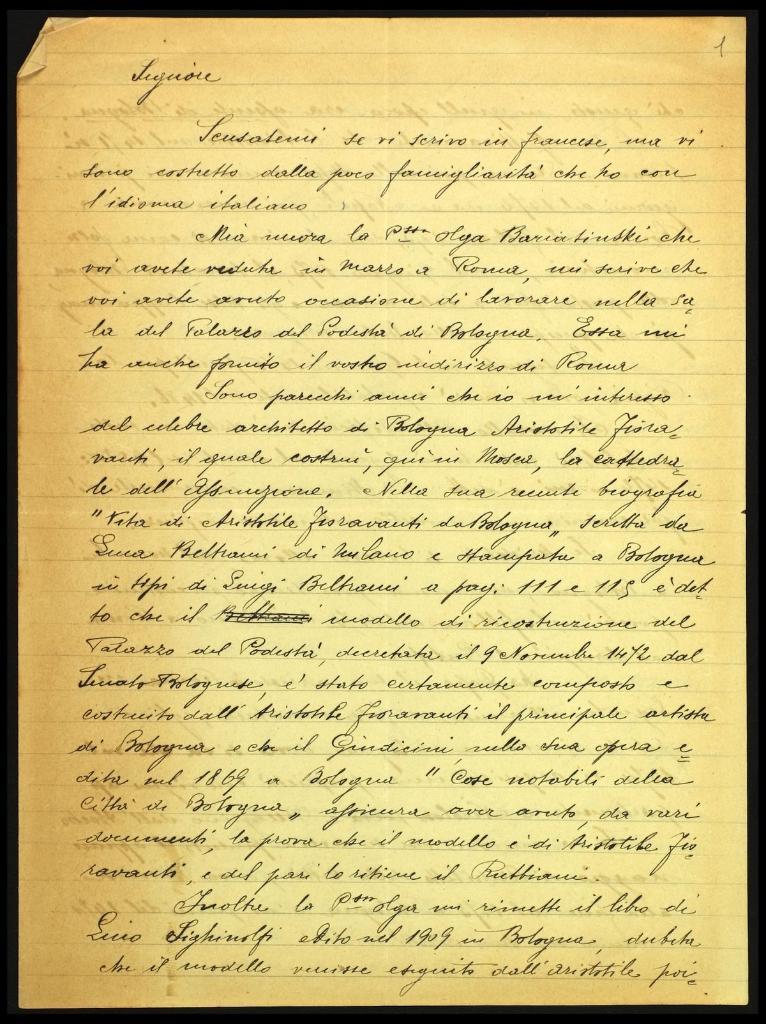 1
Signore
Scusatemi se vi scrivo in francese, ma vi
sono costretto dalla poco famigliarità che ho con
l'idioma italiano
Mia nuora la P.ssa Olga Bariatinski che
voi avete veduta in Marzo a Roma, mi scrive che
voi avete avuto occasione di lavorare nella sa-
la del Palazzo del Podestà di Bologna. Essa mi
ha anche fornito il vostro indirizzo di Roma
Sono parecchi anni che io m'interesso
del celebre architetto di Bologna Aristotile Fiora-
vanti, il quale costruì, qui in Mosca, la cattedra-
le dell'Assunzione. Nella sua recente biografia
"Vita di Aristotile Fioravanti da Bologna" scritta da
Luca Beltrami di Milano e stampata a Bologna
in tipi di Luigi Beltrami a pag: 111 e 115 è det-
to che il Beltrami modello di ricostruzione del
Palazzo del Podestà, decretata il 9 Novembre 1472 dal
Senato Bolognese, è stato certamente composto e
costruito dall'Aristotile Fioravanti il principale artista
di Bologna e che il Guidicini, nella sua opera e-
dita nel 1869 a Bologna "Cose notabili della
Città di Bologna" assicura aver avuto, da vari
documenti, la prova che il modello è di Aristotile Fio-
ravanti, e del pari lo ritiene il Rubbiani.
Inoltre la P.ssa Olga mi rimette il libro di
Lino Sighinolfi edito nel 1909 in Bologna, dubita
che il modello venisse eseguito dall'Aristotile poi-